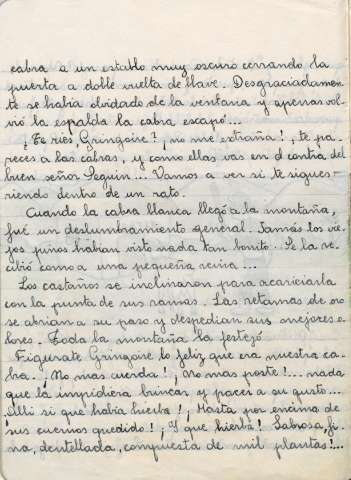 cabra a un establo muy oscuro cerrando la
puerta a doble vuelta de llave. Desgraciadamen-
te se había olvidado de la ventana y apenas vol-
vió la espalda la cabra escapó...
¿Te ries, Gringoire?, ¡no me extraña!, te pa-
reces a las cabras, y como ellas vas en d contra del
buen señor Seguin... Vamos a ver si te sigues
riendo dentro de un rato.
Cuando la cabra blanca llegó a la montaña,
fué un deslumbramiento general. Jamás los vie-
jos pinos habian visto nada tan bonito. Se la re-
cibió como a una pequeña reina...
Los castaños se inclinaron para acariciarla
con la punta de sus ramas. Las retamas de oro
se abrian a su paso y despedian sus mejores o-
lores. Toda la montaña la festejó
Figurate Gringoire lo feliz que era nuestra ca-
bra. ¡No mas cuerda!, ¡No mas poste!... nada
que la impidiera brincar y pacer a su gusto...
¡Alli si que había hierba!, ¡Hasta por encima de
sus cuernos querido!, ¡Y que hierba! Sabrosa, fi-
na, dentellada, compuesta de mil plantas!...